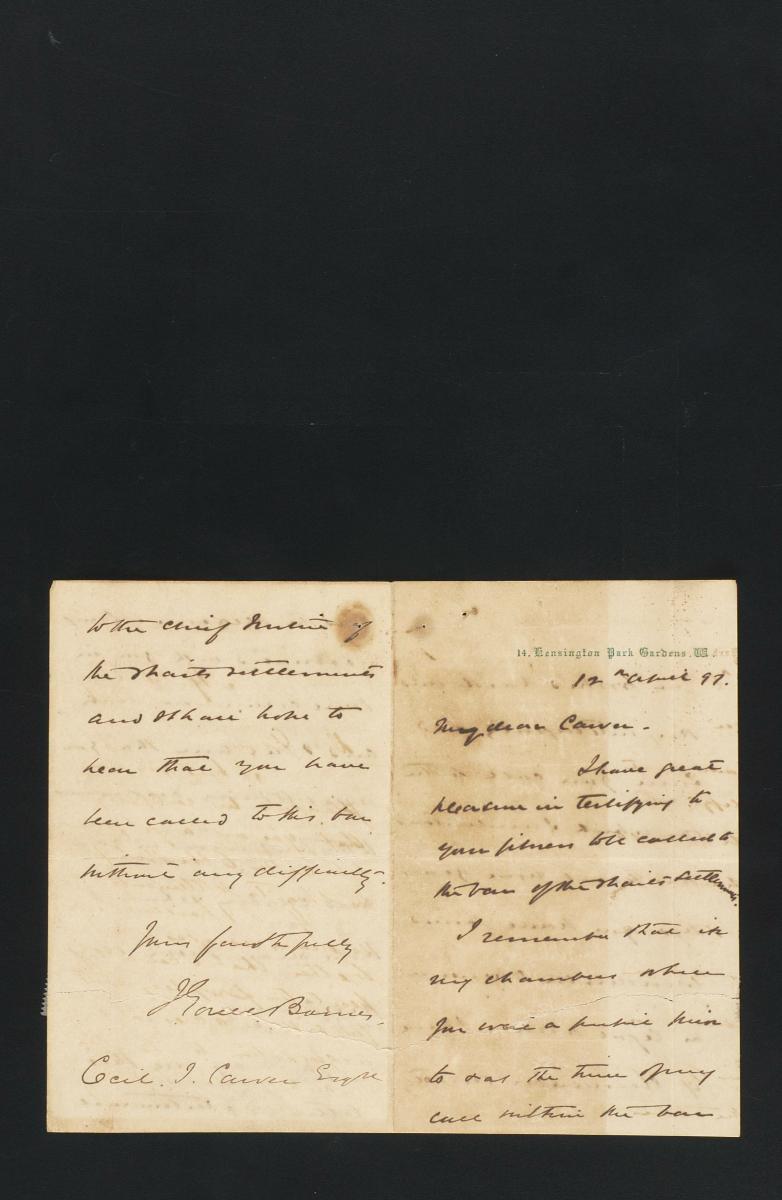 14, Kensington Park Gardens, W.
12th April 97.
My dear Carver.
I have great
pleasure in testifying to
your fitness to be called to
the bar of the Straits Settlements.
I remember that in
my chambers where
you were a pupil prior
to & at the time of my
call within the bar
to the Chief Justice of
the Straits Settlements
and shall hope to
hear that you have
been called to this bar
without any difficulty.
Yours faithfully
J Gorell Barnes.
Cecil. I. Carver Esqre